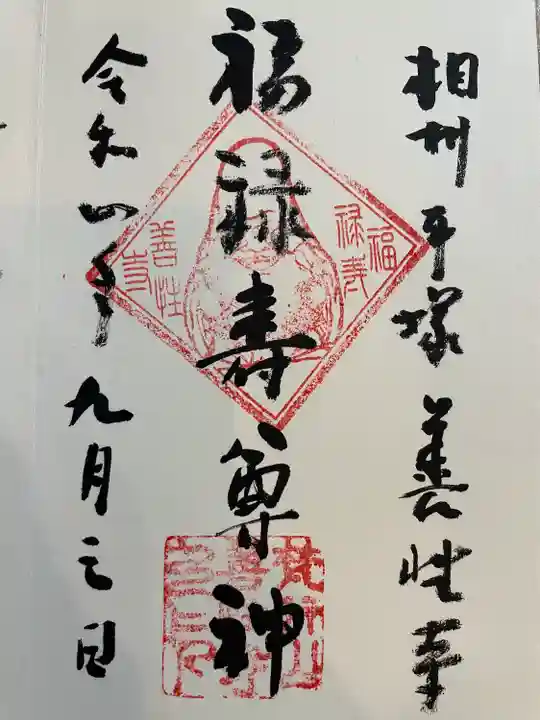 相州平塚善性寺
福禄寿尊神
福禄寿
善性寺
令和四年九月三日